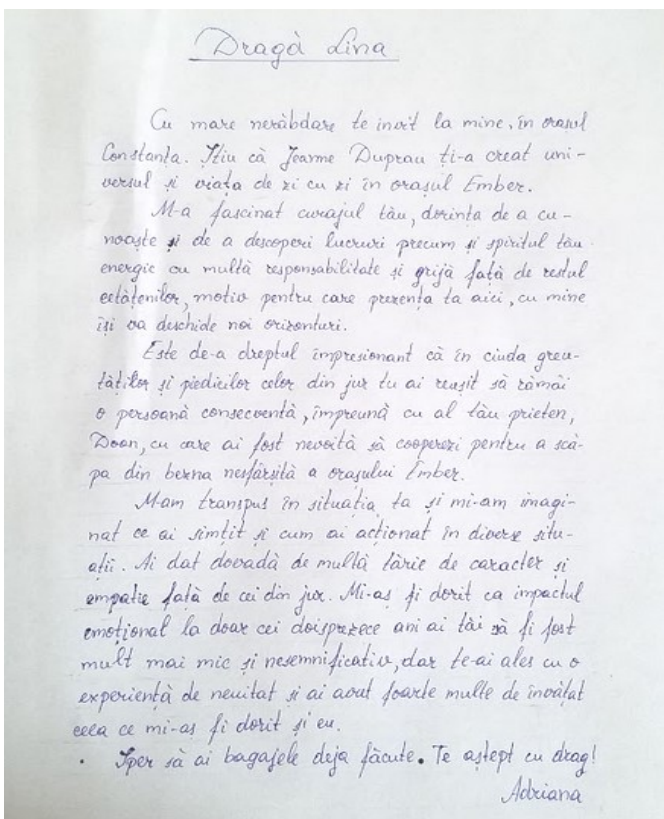 Dragă Lina
Cu mare nerăbdare te invit la mine, în orașul
Constanța. Știu că Jeanne Duprau ți-a creat uni-
versul și viața de zi cu zi în orașul Ember.
M-a fascinat curajul tău, dorința de a cu-
noaște și de a descoperi lucruri precum și spiritul tău
energic cu multă responsabilitate și grijă față de restul
cetățenilor, motiv pentru care prezența ta aici, cu mine
își va deschide noi orizonturi.
Este de-a dreptul impresionant că în ciuda greu-
tăților și piedicilor celor din jur tu ai reușit să rămâi
o persoană consecventă, împreună cu al tău prieten,
Doon, cu care ai fost nevoită să cooperezi pentru a scă-
pa din bezna nesfârșită a orașului Ember.
M-am transpus în situația ta și mi-am imagi-
nat ce ai simțit și cum ai acționat în diverse situ-
ații. Ai dat dovadă de multă tărie de caracter și
empatie față de cei din jur. Mi-aș fi dorit ca impactul
emoțional la doar cei doisprezece ani ai tăi să fi fost
mult mai mic și nesemnificativ, dar te-ai ales cu o
experiență de neuitat și ai avut foarte multe de învățat
ceea ce mi-aș fi dorit și eu.
Sper să ai bagajele deja făcute. Te aștept cu drag!
Adriana